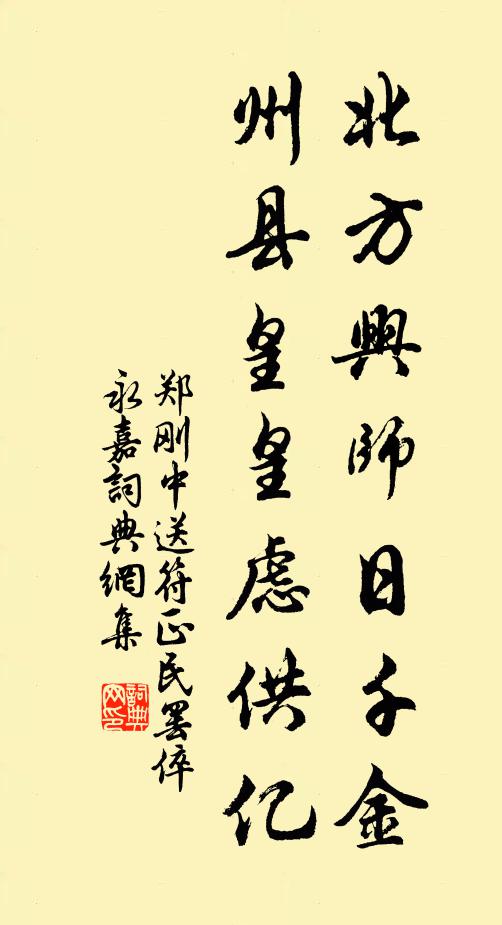 北方興師日千金
州县皇皇慮供亿
郑刚中送符正民罢倅
永嘉詞典網集
詞典网印